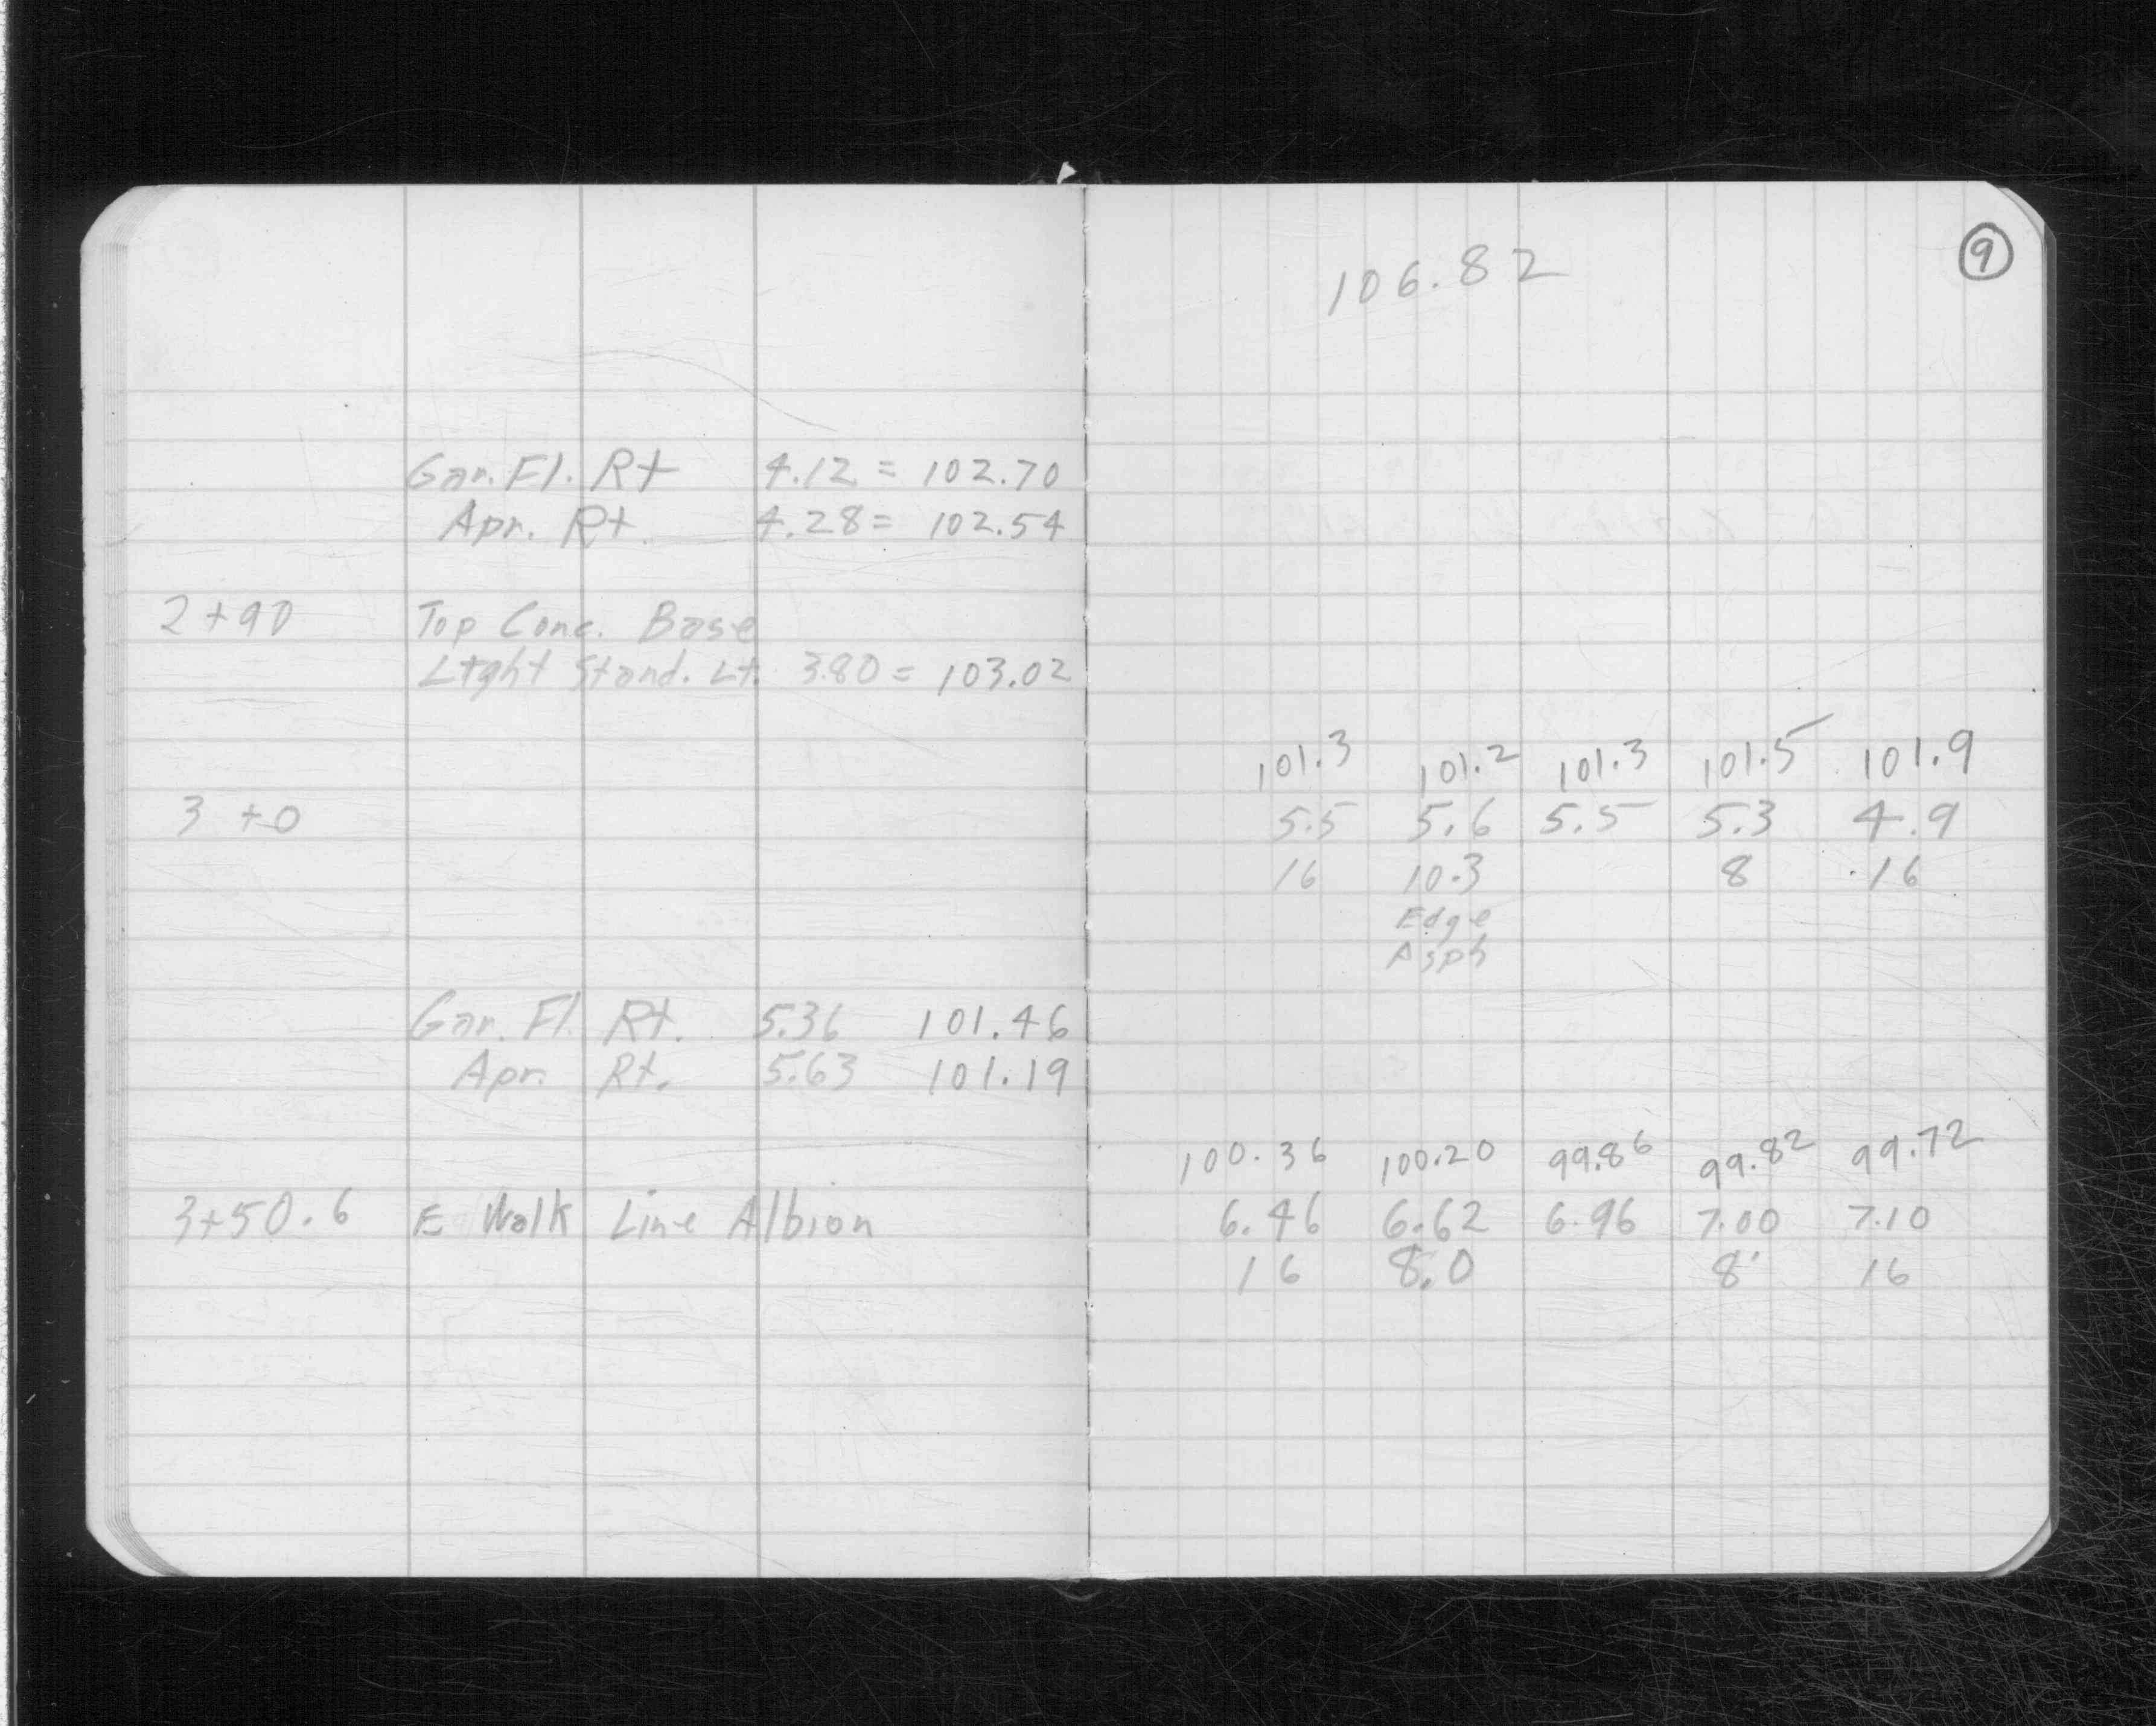 106.82
9
Gar. Fl. Rt 4.12 = 102.70
Apr. Rt. 4.28 = 102.54
2+90 Top Conc. Base
Light Stand. Lt. 3.80 = 103.02
101.3 101.2 101.3 101.5 101.9
3+0 5.5 5.6 5.5 5.3 4.9
16 10.3 8 16
Edge
Asph
Gar. Fl. Rt. 5.36 101.46
Apr. Rt. 5.63 101.19
100.36 100.20 99.86 99.82 99.72
3+50.6 E Walk Line Albion 6.46 6.62 6.96 7.00 7.10
16 8.0 8' 16